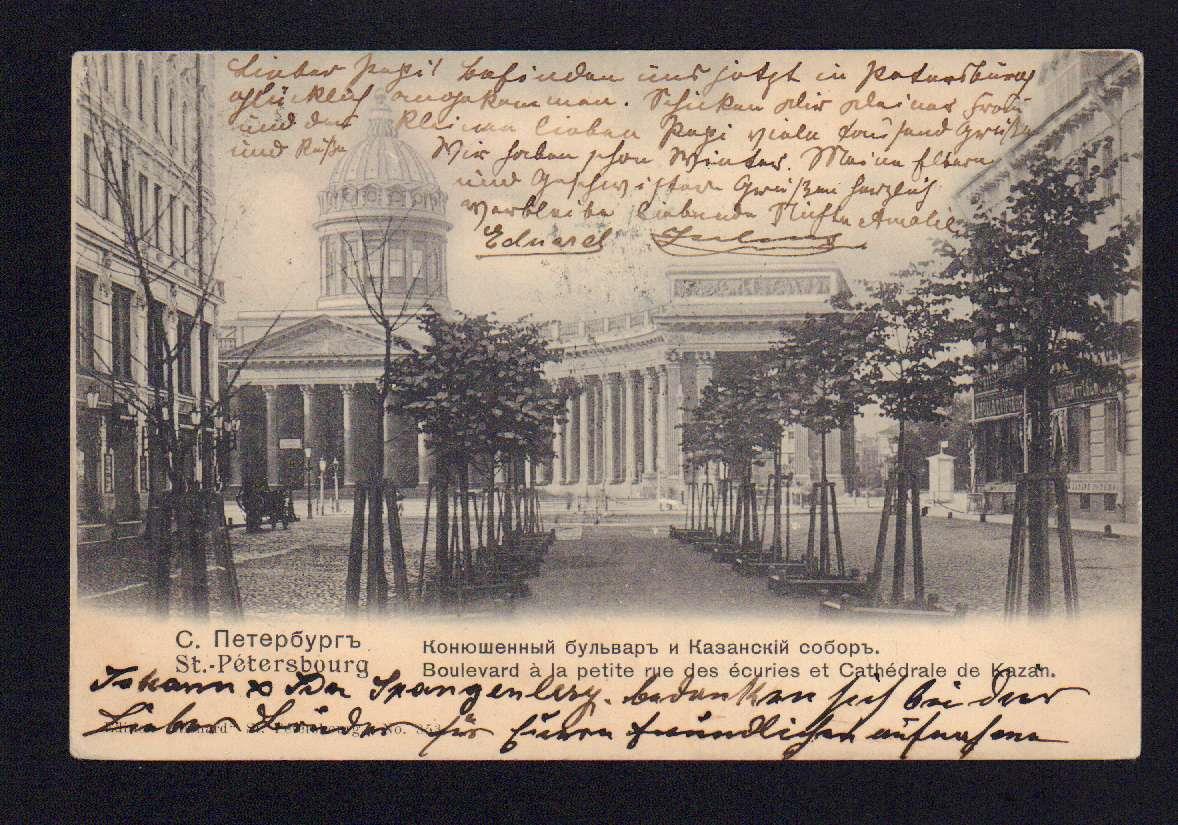 Lieber Pepi! befinden uns jetzt in Petersburg
glücklich angekommen. Schicken dir deiner Frau
und der kleinen lieben Pepi viele tausend Grüße
und Küße Wir haben schon Winter. Meine Eltern
und Geschwister Grüßen herzlich
verbleibe liebende Amalie
Eduard
С. Петербургъ
St.-Pétersbourg
Конюшенный бульваръ и Казанскій соборъ.
Boulevard à la petite rue des écuries et Cathédrale de Kazan.
Johann Spangenberg. bedanken sich bei dir
Lieber Bruder für Euere freundlichen aufnahme